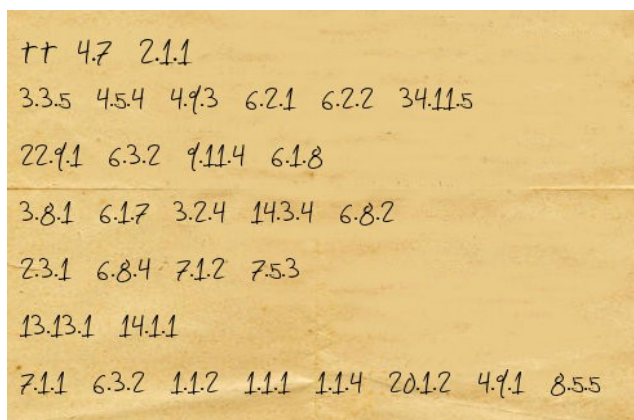 tt 4.7 2.1.1
3.3.5 4.5.4 4.9.3 6.2.1 6.2.2 34.11.5
22.9.1 6.3.2 9.11.4 6.1.8
3.8.1 6.1.7 3.2.4 14.3.4 6.8.2
2.3.1 6.8.4 7.1.2 7.5.3
13.13.1 14.1.1
7.1.1 6.3.2 1.1.2 1.1.1 1.1.4 20.1.2 4.9.1 8.5.5